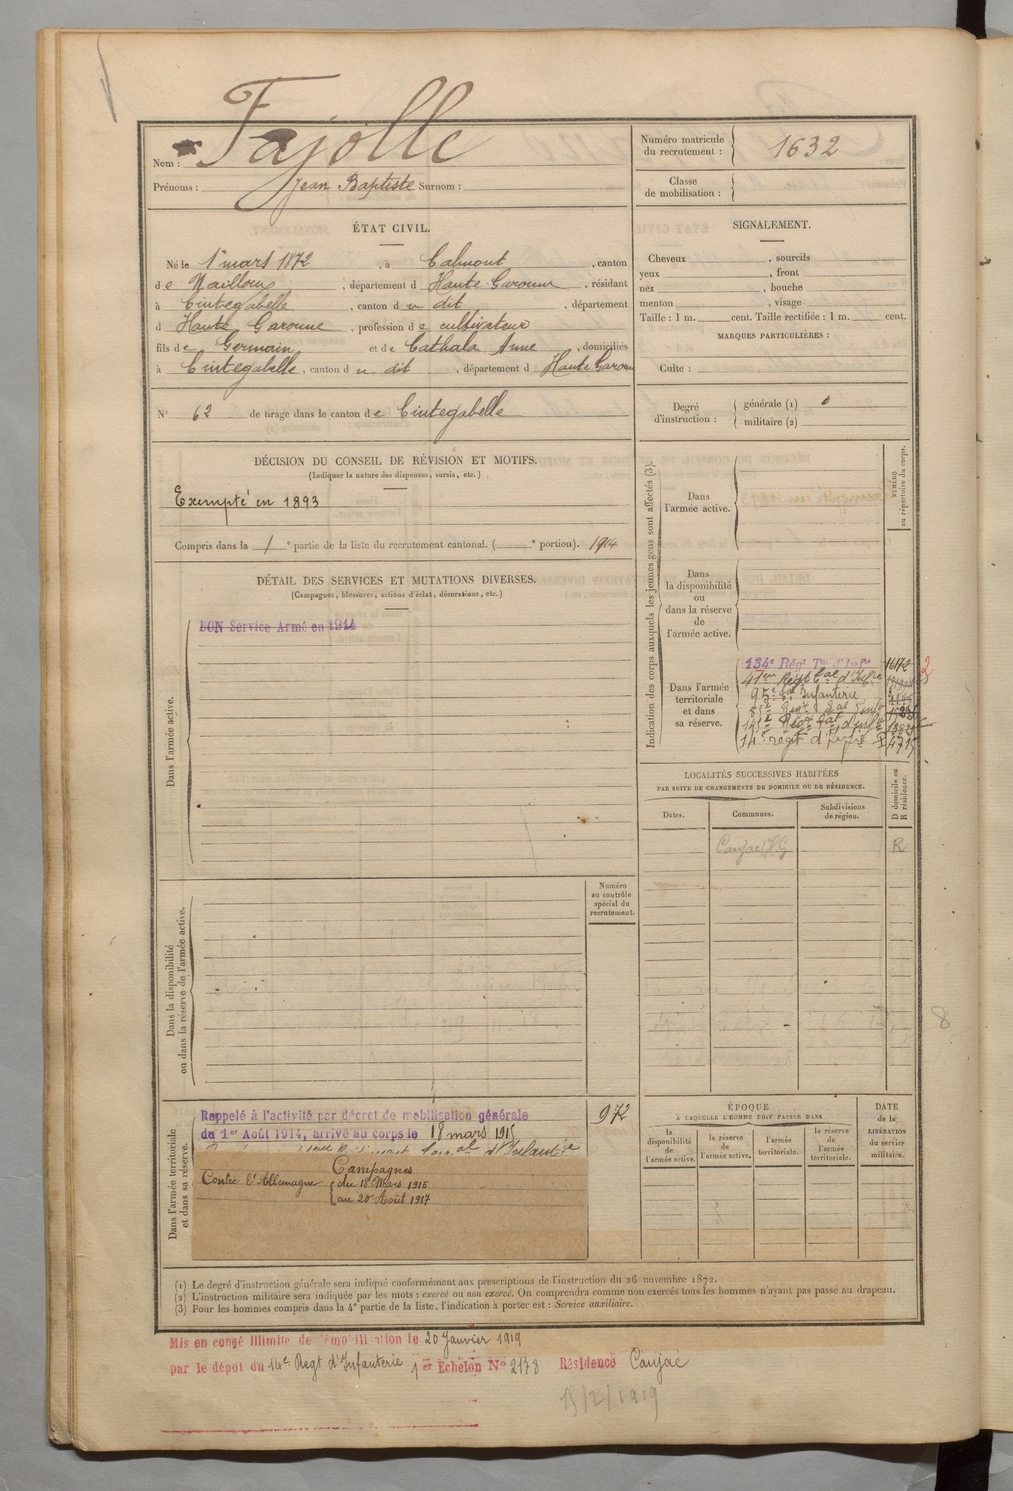 Fajolle
Nom :
Prénoms : Jean Baptiste Surnom :
Numéro matricule
du recrutement : 1632
Classe
de mobilisation :
ÉTAT CIVIL.
Né le 1er mars 1872, à Calmont, canton
de Nailloux, département d Haute Garonne, résidant
à Cintegabelle, canton du dit, département
d Haute Garonne, profession de cultivateur
fils de Germain et de Cathala Anne, domiciliés
à Cintegabelle, canton du dit, département d Haute Garonne
N° 62 de tirage dans le canton de Cintegabelle
SIGNALEMENT.
Cheveux , sourcils
yeux , front
nez , bouche
menton , visage
Taille : 1 m. cent. Taille rectifiée : 1 m. cent.
MARQUES PARTICULIÈRES :
Culte :
Degré
d'instruction :
générale (1) 0
militaire (2)
DÉCISION DU CONSEIL DE RÉVISION ET MOTIFS.
(Indiquer la nature des dispenses, sursis, etc.)
Exempté en 1893
Compris dans la 1e partie de la liste du recrutement cantonal. ( e portion). 1914
DÉTAIL DES SERVICES ET MUTATIONS DIVERSES.
(Campagnes, blessures, actions d'éclat, décorations, etc.)
BON Service Armé en 1914
Dans l'armée active.
Dans la disponibilité
ou dans la réserve de l'armée active.
Numéro
au contrôle
spécial du
recrutement.
Dans l'armée territoriale
et dans sa réserve.
Rappelé à l'activité par décret de mobilisation générale
du 1er Août 1914, arrivé au corps le 18 mars 1915
d'Infanterie
Campagnes
Contre l'Allemagne du 18 Mars 1915
au 20 Août 1917
972
Indication des corps auxquels les jeunes gens sont affectés (3).
NUMÉRO
au répertoire du corps.
Dans
l'armée active.
Dans
la disponibilité
ou
dans la réserve
de
l'armée active.
Dans l'armée
territoriale
et dans
sa réserve.
134e Régt Tal d'Infie 16172
2
95e tal Infanterie
14e régt d'infie
LOCALITÉS SUCCESSIVES HABITÉES
PAR SUITE DE CHANGEMENTS DE DOMICILE OU DE RÉSIDENCE.
Dates.
Communes.
Subdivisions
de région.
D domicile ou
R résidence.
Caujac (H.G R
8
ÉPOQUE
À LAQUELLE L'HOMME DOIT PASSER DANS
la
disponibilité
de
l'armée active.
la réserve
de
l'armée active.
l'armée
territoriale.
la réserve
de
l'armée
territoriale.
DATE
de la
LIBÉRATION
du service
militaire.
(1) Le degré d'instruction générale sera indiqué conformément aux prescriptions de l'instruction du 26 novembre 1872.
(2) L'instruction militaire sera indiquée par les mots : exercé ou non exercé. On comprendra comme non exercés tous les hommes n'ayant pas passé au drapeau.
(3) Pour les hommes compris dans la 4e partie de la liste, l'indication à porter est : Service auxiliaire.
Mis en congé illimité de démobilisation le 20 Janvier 1919
par le dépot du 14e Regt d'Infanterie 1er Echelon N° 2178 Résidence Caujac
15/2/1919